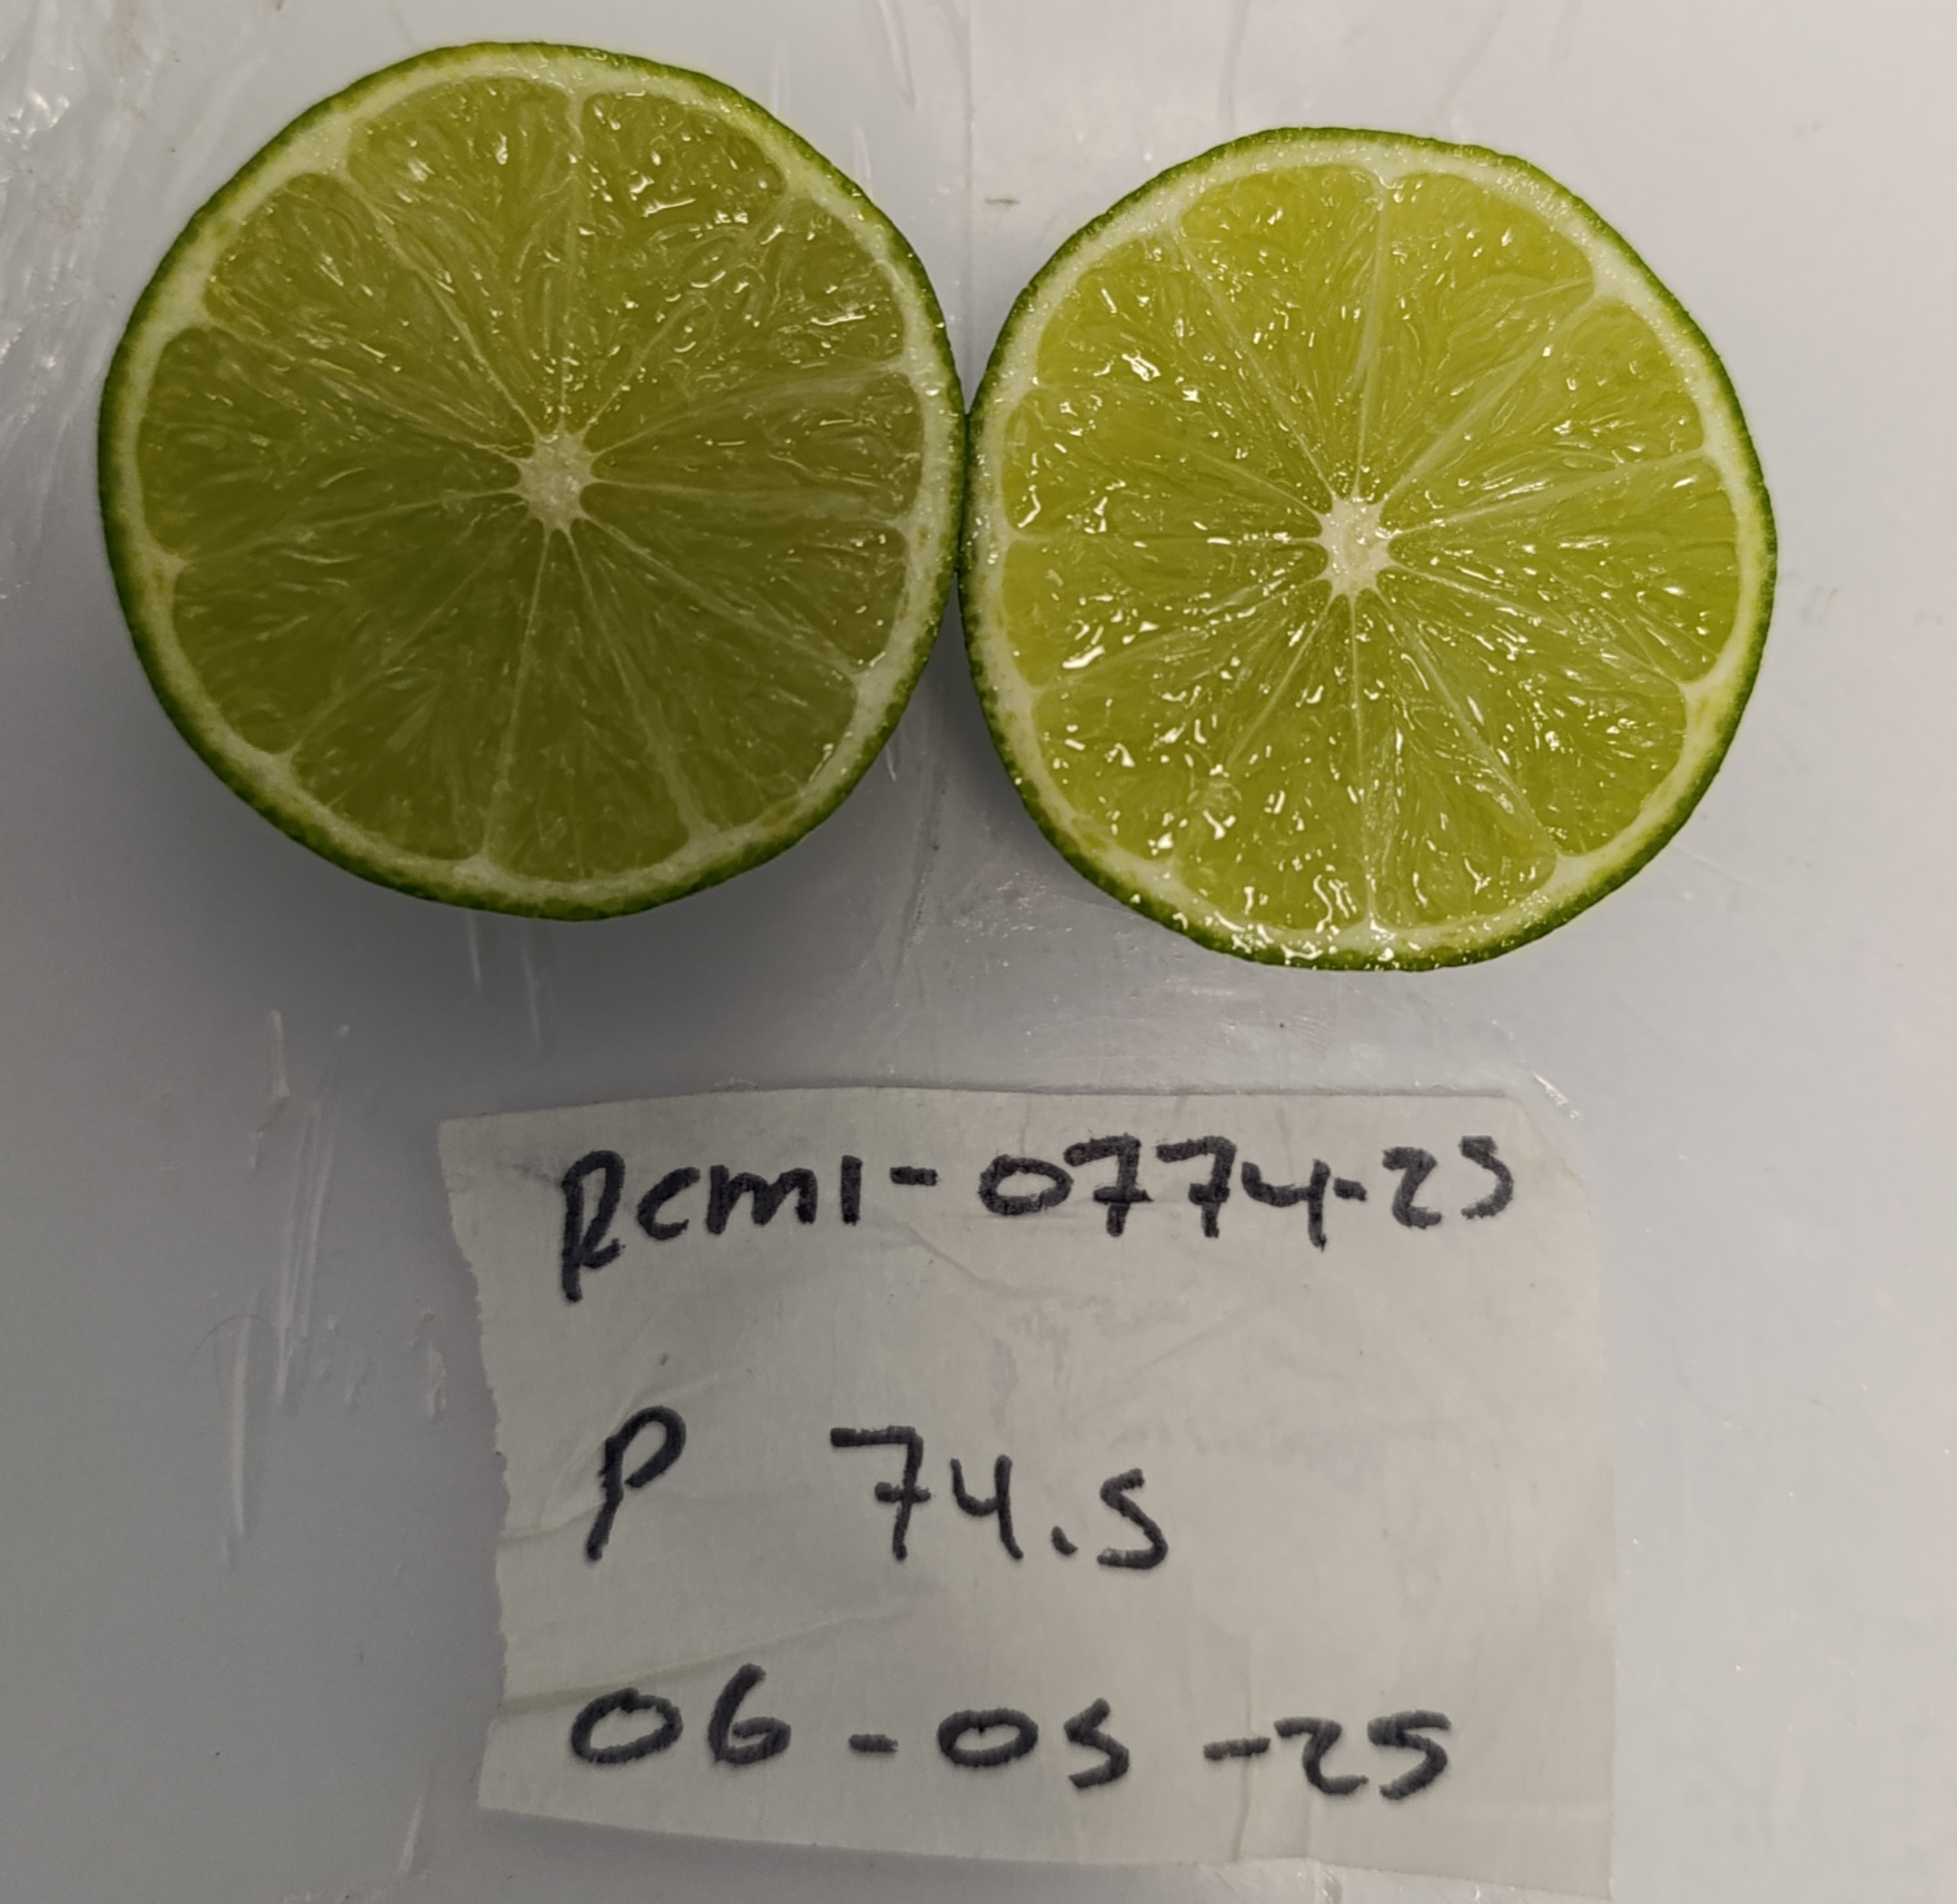 RCM1-0774-25
P 74.5
06-05-25